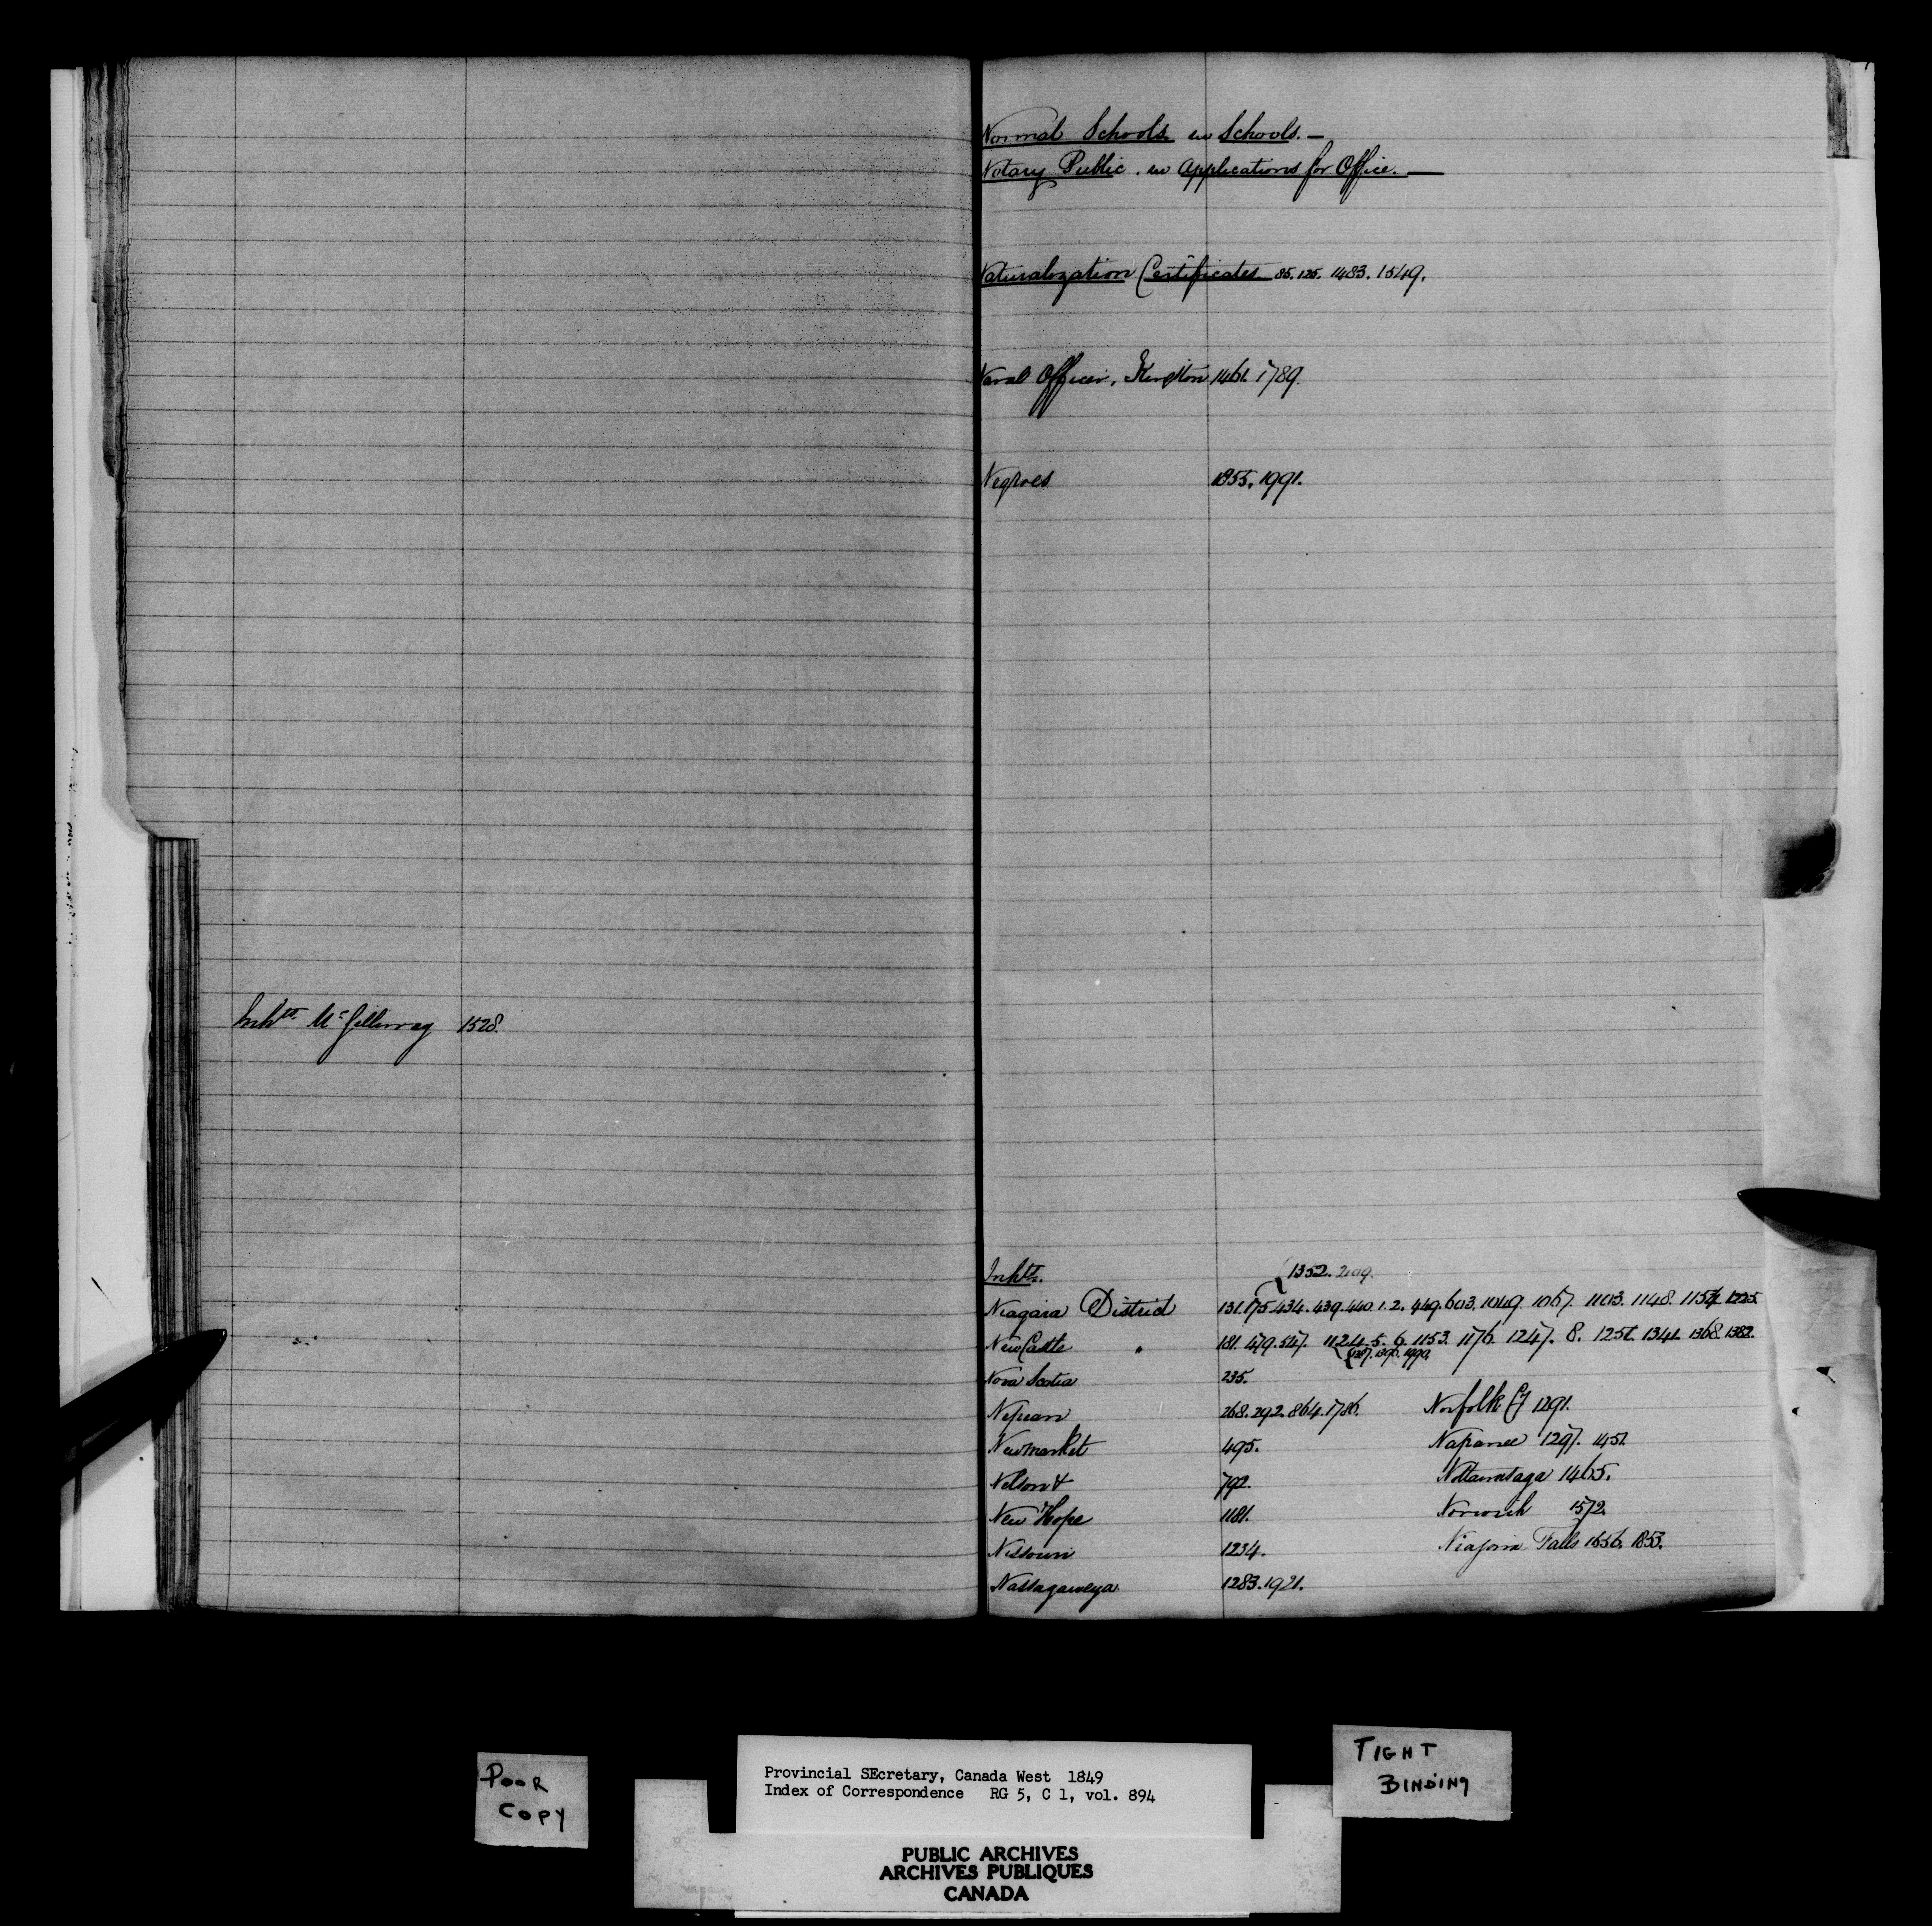 Inhts. McGillivray 1528.
Normal Schools in Schools.—
Notary Public. in Applications for Office.—
Naturalization Certificates 85. 125. 1483. 1549.
Naval Officer, Kingston 1461. 1789.
Negroes 1855. 1991.
Inhts.
{1352. 2109.
Niagara District 131. 175. 434. 439. 440. 1. 2. 449. 603. 1049. 1067. 1103. 1148. 1154. 1225.
NewCastle " 181. 479. 547. 1124. 5. 6. 1153. 1176. 1247. 8. 1251. 1341. 1368. 1382.
Nova Scotia 235.
Nepean 268. 292. 864. 1786. Norfolk Cy 1291.
Newmarket 495. Napanee 1297. 1451.
Nelson 792. Nottawasaga 1465.
New Hope 1181. Norwich 1572.
Nissouri 1234. Niagara Falls 1656. 1853.
Nassagaweya 1283. 1921.
POOR
COPY
Provincial SEcretary, Canada West 1849
Index of Correspondence RG 5, C 1, vol. 894
TIGHT
BINDING
PUBLIC ARCHIVES
ARCHIVES PUBLIQUES
CANADA